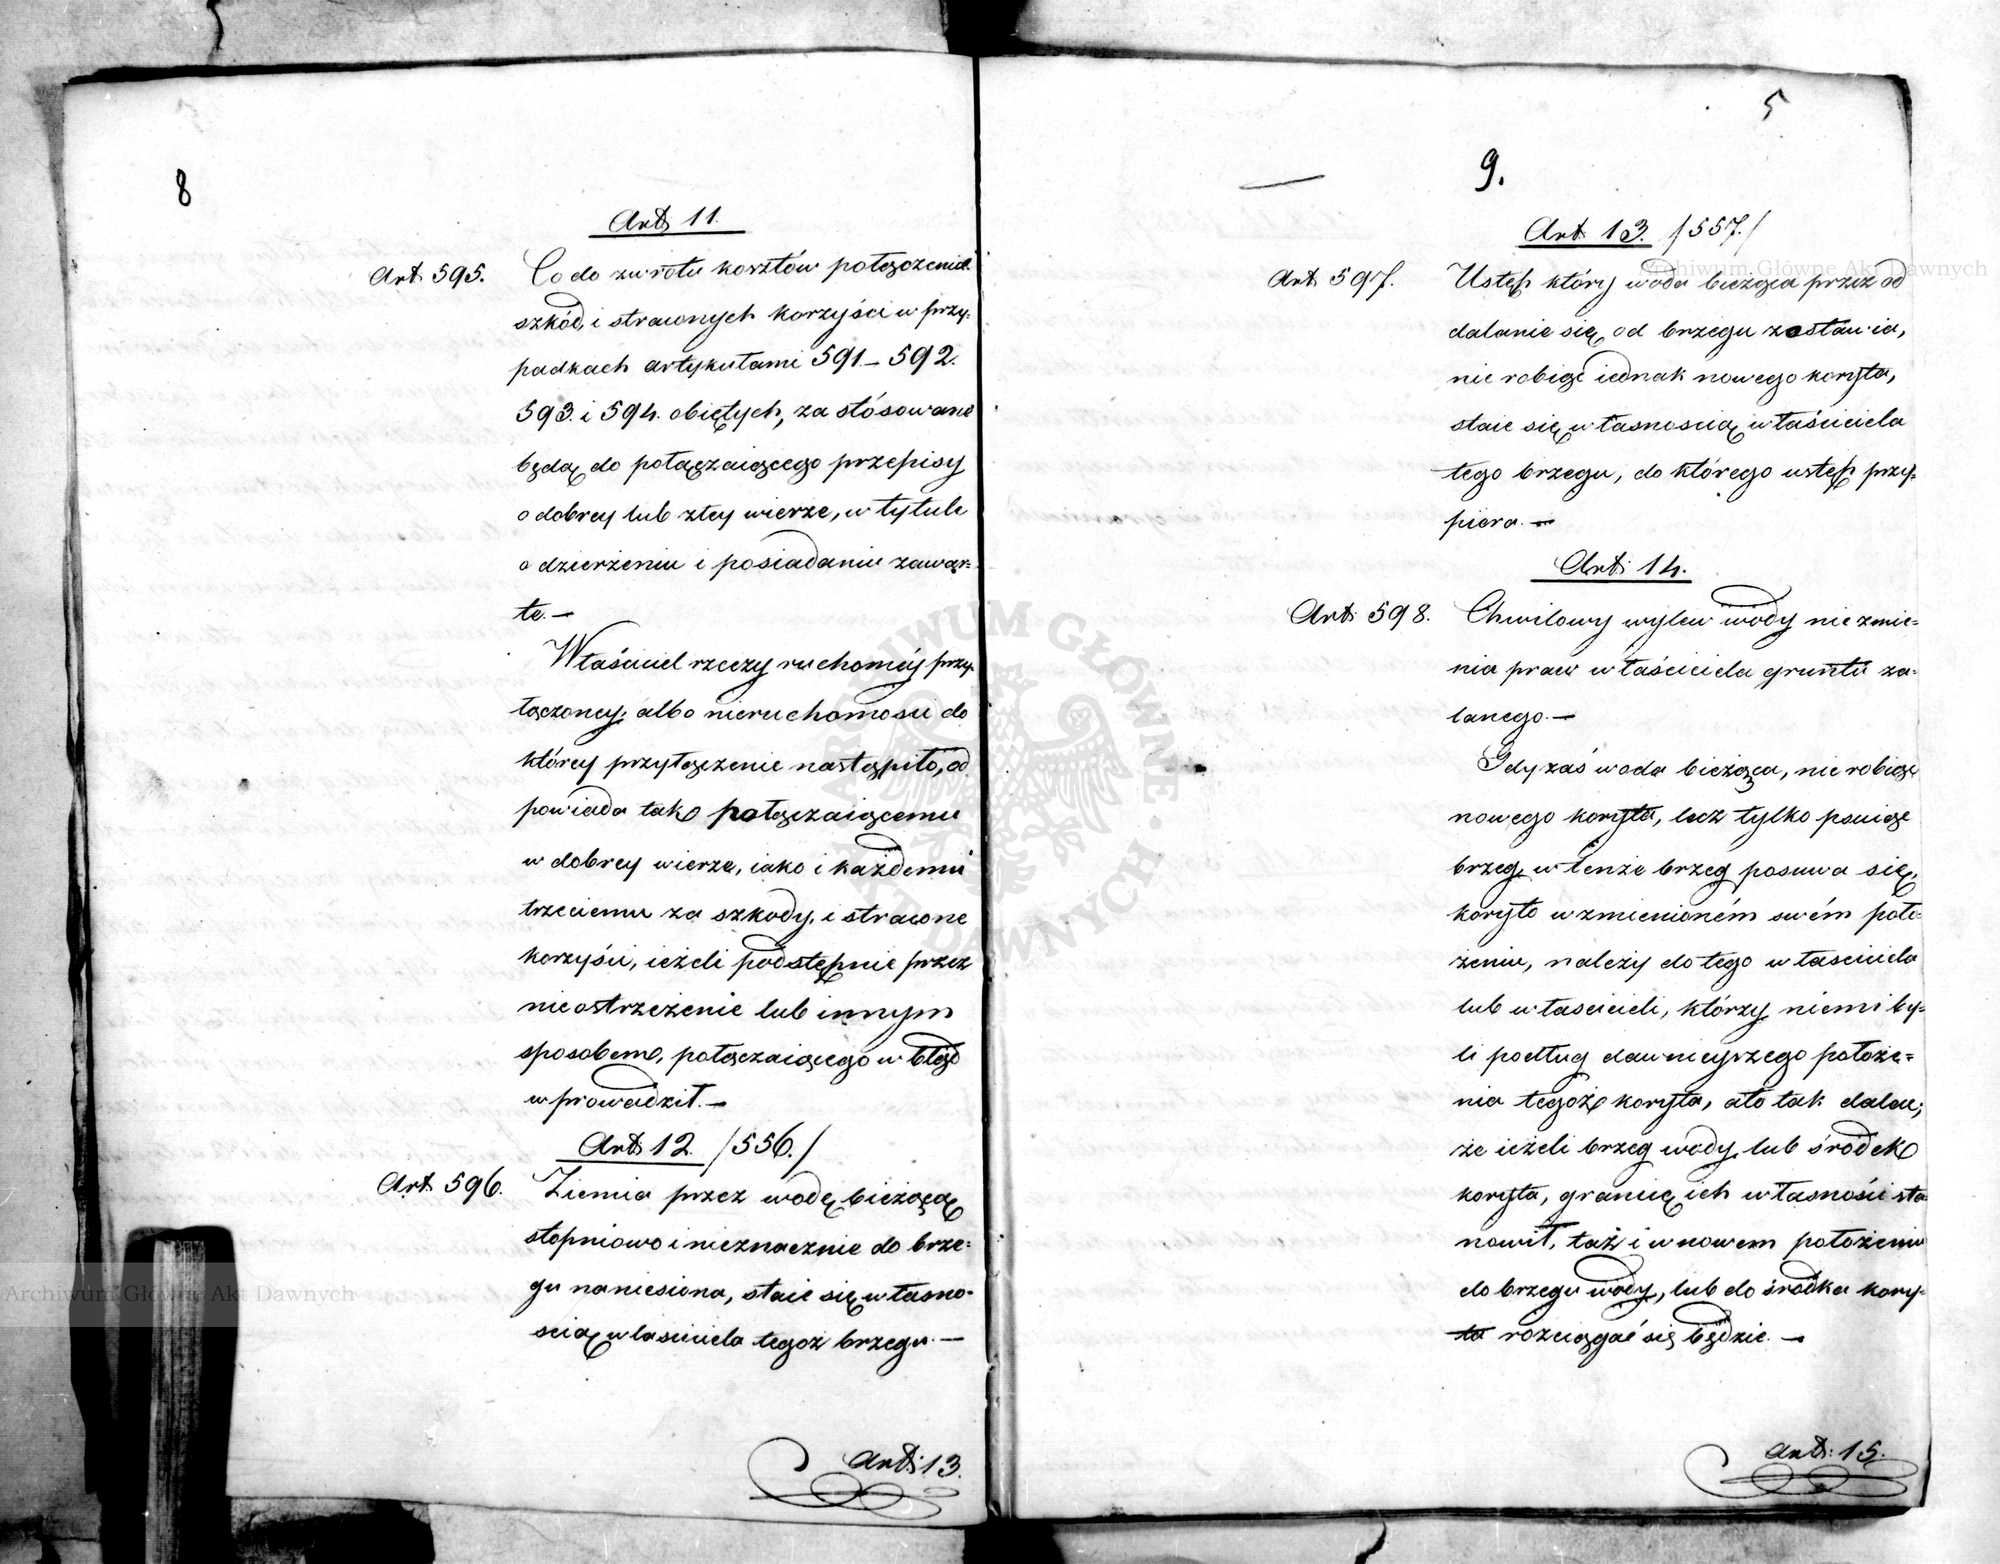 8
Art. 11.
Art. 595. Co do zwrotu kosztów połączenia
szkód, i straconych korzyści w przy=
padkach artykułami 591 – 592.
593. i 594. obiętych, za stósowane
będą do połączaiącego przepisy
o dobrey lub złey wierze, w tytule
o dzierżeniu i posiadaniu zawar=
te. —
Właściciel rzeczy ruchoméy przy=
łączoney, albo nieruchomości do
którey przyłączenie nastąpiło, od
powiada tak połączaiącemu
w dobrey wierze, iako i każdemu
trzeciemu za szkody, i stracone
korzyści, ieżeli podstępnie przez
nieostrzeżenie lub innym
sposobem, połączaiącego w błąd
wprowadził. —
Art. 12. /556./
Art. 596. Ziemia przez wodę bieżącą
stopniowo i nieznacznie do brze=
gu naniesiona, staie się własno=
ścią właściciela tegoż brzegu. —
Art: 13.
5
9.
Art. 13. /557./
Art. 597. Ustęp który woda bieżąca przez od
dalanie się od brzegu zostawia,
nie robiąc iednak nowego koryta,
staie się własnością właściciela
tego brzegu, do którego ustęp przy=
piera. —
Art: 14.
Art. 598. Chwilowy wylew wody nie zmie=
nia praw właściciela gruntu za=
lanego. —
Gdy zaś woda bieżąca, nie robiąc
nowego koryta, lecz tylko psuiąc
brzeg, w tenże brzeg posuwa się,
koryto w zmienioném swém poło=
żeniu, należy do tego właściciela
lub właścicieli, którzy niemi by=
li podług dawnieyszego położe=
nia tegoż koryta, a to tak daleu;
że ieżeli brzeg wody, lub środek
koryta, granicę ich własności sta=
nowił, taż i w nowem położeniu
do brzegu wody, lub do środka kory=
ta rozciągać się będzie. —
Art: 15.
Archiwum Główne Akt Dawnych
Archiwum Główne Akt Dawnych
ARCHIWUM GŁÓWNE AKT DAWNYCH